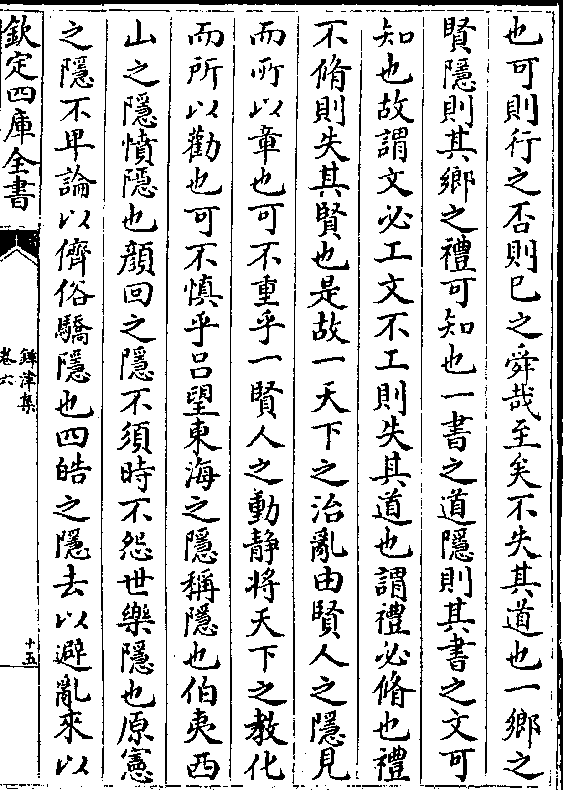 也可則行之否則已之舜哉至矣不失其道也一鄉之
賢隱則其鄉之禮可知也一書之道隱則其書之文可
知也故謂文必工文不工則失其道也謂禮必脩也禮
不脩則失其賢也是故一天下之治亂由賢人之隱見
而所以章也可不重乎一賢人之動静將天下之教化
而所以勸也可不慎乎吕望東海之隱稱隱也伯夷西
山之隱憤隱也顔回之隱不須時不怨世樂隱也原憲
之隱不卑論以儕俗驕隱也四皓之隱去以避亂來以
欽定四庫全書
鐔津集
卷六
十五